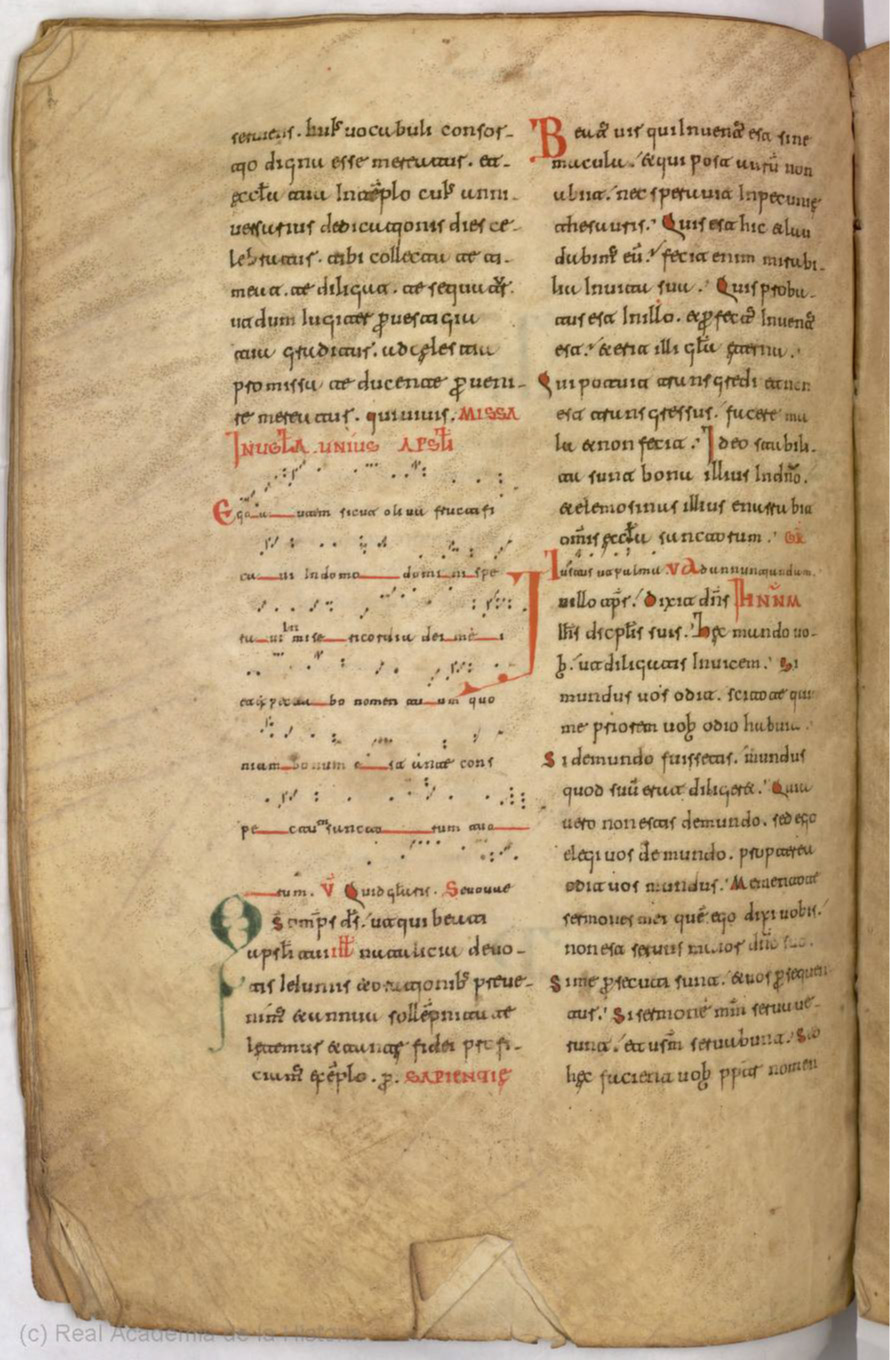 seruiens. hui; uocabuli consor-
tio digna esse mereatur. et-
eccła tua In tēplo cui; anni-
uersarius dedicationis dies ce-
lebratur. tibi collecta te ti-
meat. te diligat. te sequat̃.
ut dum iugiter ꝑ uestigia
tua gradiatur. ad celestia
promissa te ducente ꝑueni-
re mereatur. qui uiuis. MISSA
IN UGŁA . UNIUS APSŁI
Ego autem sicut oliua fructifi
ca ui In domo domini spe
ra ui In mise ricordia dei me i
et expecta bo nomen tu um quo
niam bonum e s ante cons
pe ctum sancto rum tuo
rum. V̄ Quid głaris. Seuouae
Om̄ps d̄s. ut qui beati
apsłi tui iłł natalicia deuo-
tis Ieiuniis & orationib; preue-
nim; & annua sollēpnitate
letemur & aucte fidei profi-
ciam; exēplo. p̱. SAPIENTIE
Beat; uir qui Inuent; est sine
macula. & qui post aurū non
abiit. nec sperauit In pecunie
thesauris. Quis est hic & lau
dabim; eū. fecit enim mirabi-
lia In uita sua. Quis proba-
tus est In illo. & ꝑfect; Inuent;
est. & erit illi głа eterna.
Qui potuit transgredi et non
est transgressus. facere ma
la & non fecit. Ideo stabili-
ta sunt bona illius In dño.
& elemosinas illius enarrabit
om̄is eccła sanctorum. GR
Iustus ut palma V Ad annuntiandum.
In illo tp̄r. dixit dñs IHN̄UM
ihs discplis suis. hec mundo uo-
b. ut diligatis Inuicem. Si
mundus uos odit. scitote quia
me priorem uob odio habuit.
Si de mundo fuissetis. mundus
quod suū erat diligeret. Quia
uero non estis de mundo. sed ego
elegi uos de mundo. propterea
odit uos mundus. Mementote
sermones mei quē ego dixi uobis.
non est seruus maior dño suo.
Si me ꝑsecuti sunt. & uos ꝑsequen
tur. Si sermonē mm̄ seruaue-
runt. et usm̄ seruabunt. Sed
hec facient uob ppt̄ nomen